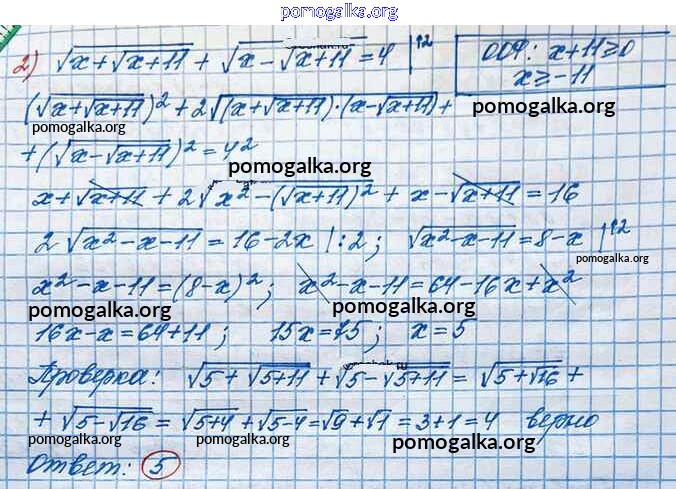 pomogalka.org
2) √(x+√(x+11)) + √(x-√(x+11)) = 4 |↑2 ОДЗ: x+11≥0
x≥-11
(√(x+√(x+11)))² + 2√((x+√(x+11))·(x-√(x+11))) + pomogalka.org
pomogalka.org
+ (√(x-√(x+11)))² = 4²
pomogalka.org
x + √(x+11) + 2√(x²-(√(x+11))²) + x - √(x+11) = 16
2√(x²-x-11) = 16-2x |:2; √(x²-x-11) = 8-x |↑2
pomogalka.org
x²-x-11 = (8-x)²; x²-x-11 = 64-16x+x²
pomogalka.org pomogalka.org
16x-x = 64+11; 15x = 75; x = 5
Проверка: √(5+√(5+11)) + √(5-√(5+11)) = √(5+√16) +
+ √(5-√16) = √(5+4) + √(5-4) = √9 + √1 = 3+1 = 4 верно
pomogalka.org pomogalka.org pomogalka.org
Ответ: 5